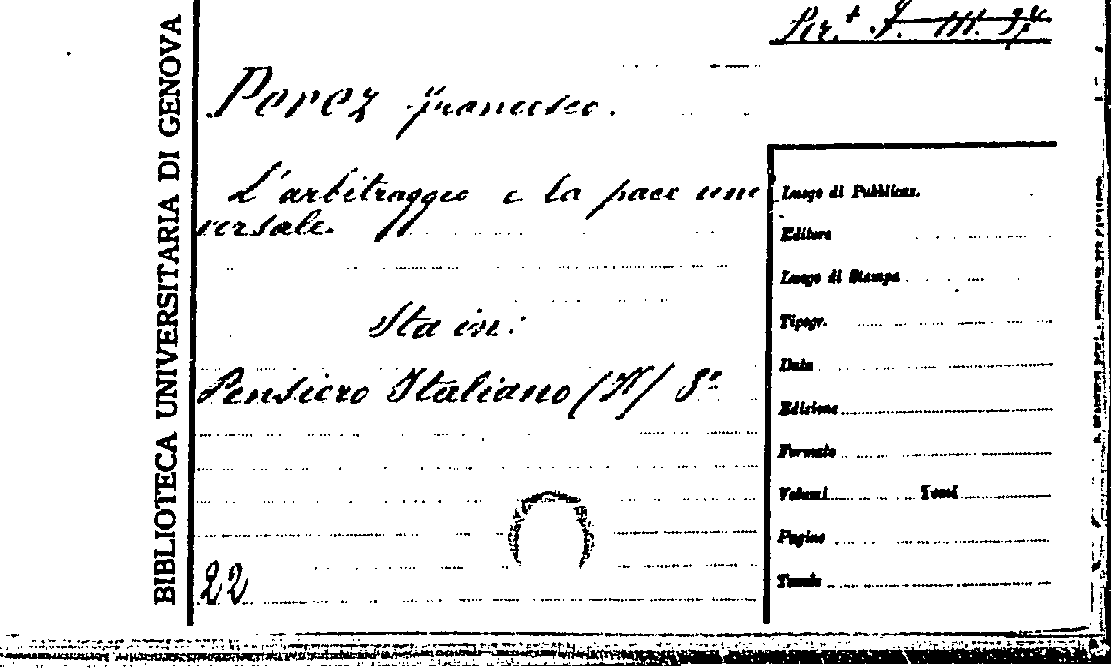 BIBLIOTECA UNIVERSITARIA DI GENOVA
Per.+
Perez Francesco.
L'arbitraggio e la pace uni
versale.
Sta in:
Pensiero Italiano (Il) 8°
22
Luogo di Pubblicaz.
Editore
Luogo di Stampa
Tipogr.
Data
Edizione
Formato
Volumi Tomi
Pagine
Tavole